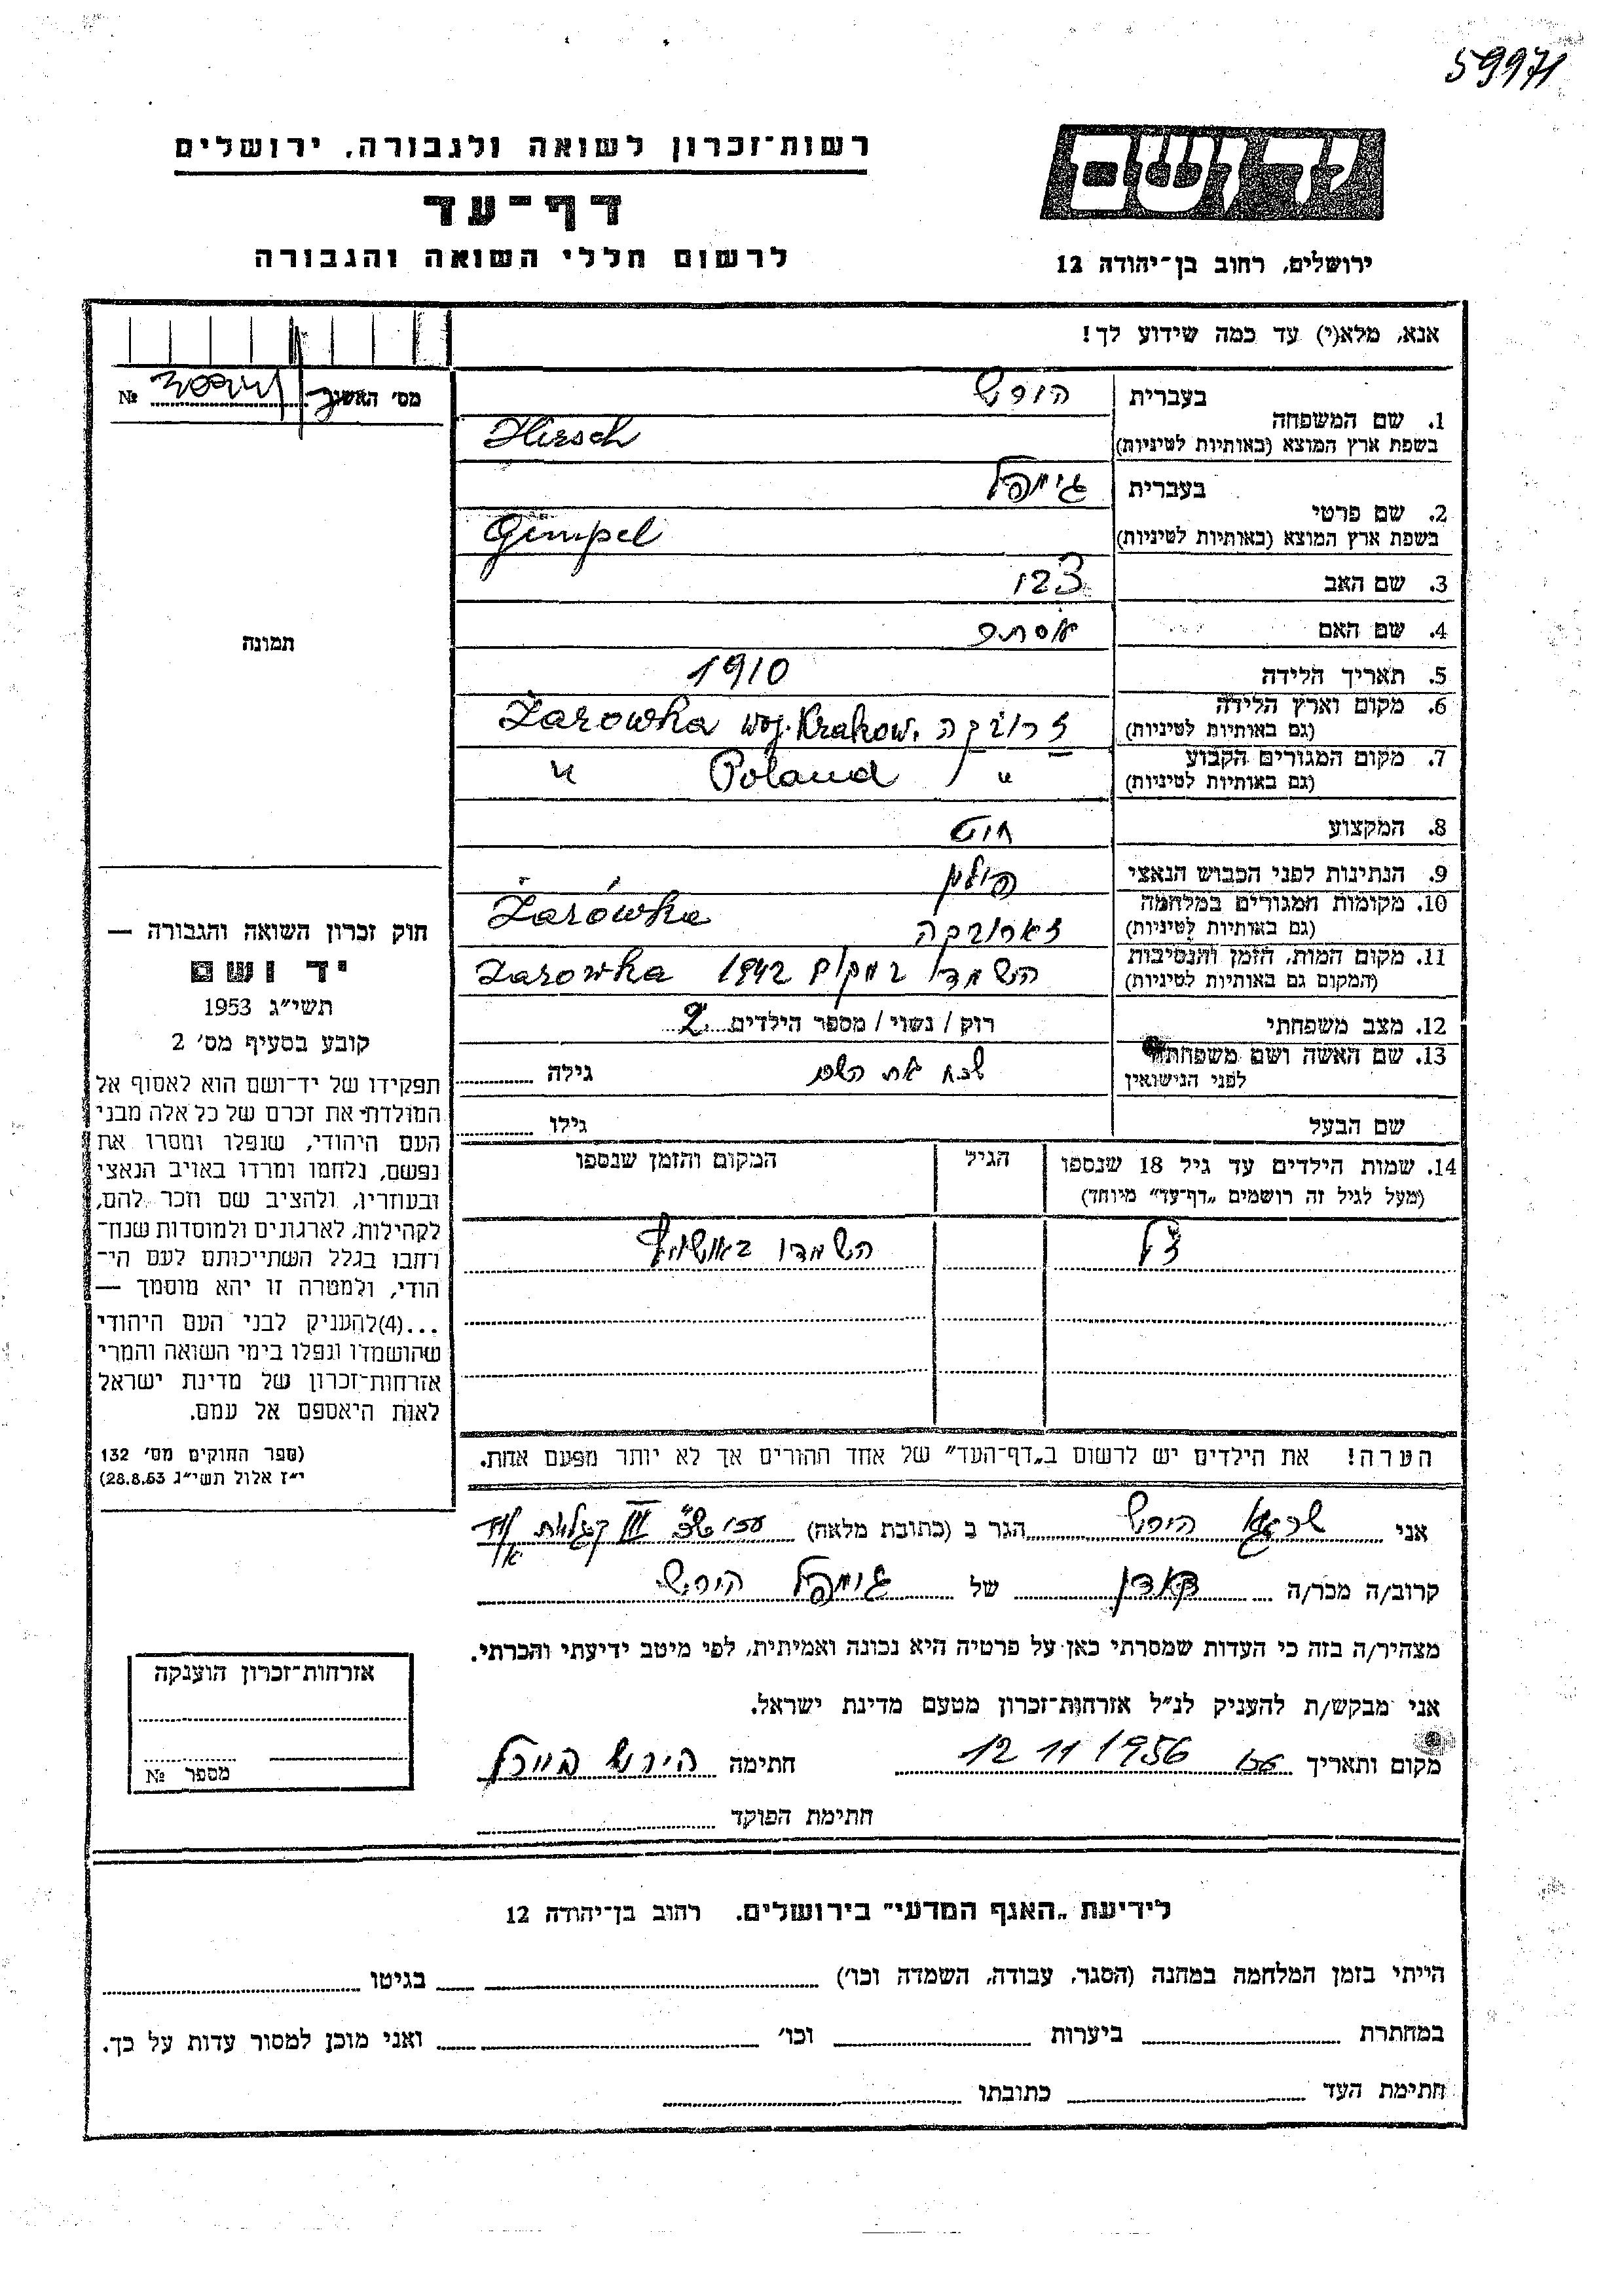 59971
רשות־זכרון לשואה ולגבורה, ירושלים
דף־עד
לרשום חללי השואה והגבורה
יד ושם
ירושלים, רחוב בן־יהודה 12
אנא, מלא(י) עד כמה שידוע לך!
מס' האשה № 
1. שם המשפחה
בעברית הירש
בשפת ארץ המוצא (באותיות לטיניות) Hirsch
2. שם פרטי
בעברית גימפל
בשפת ארץ המוצא (באותיות לטיניות) Gimpel
3. שם האב
4. שם האם אסתר
5. תאריך הלידה 1910
6. מקום וארץ הלידה
(גם באותיות לטיניות) זרובקה Żarówka woj. Krakow.
7. מקום המגורים הקבוע
(גם באותיות לטיניות) " / Poland "
8. המקצוע חיט
9. הנתינות לפני הכבוש הנאצי פולין
10. מקומות המגורים במלחמה
(גם באותיות לטיניות) זארובקה Żarówka
11. מקום המות, הזמן והנסיבות
(המקום גם באותיות לטיניות) הושמד במקום 1942 Żarowka
12. מצב משפחתי רוק / נשוי / מספר הילדים 2
13. שם האשה ושם משפחתה
לפני הנישואין גילה
שם הבעל גילו
14. שמות הילדים עד גיל 18 שנספו
(מעל לגיל זה רושמים „דף־עד" מיוחד)
הגיל
המקום והזמן שנספו
השמדו
הערה! את הילדים יש לרשום ב„דף־העד" של אחד ההורים אך לא יותר מפעם אחת.
אני הירש הגר ב (כתובת מלאה) III
קרוב/ה מכר/ה של גימפל הירש
מצהיר/ה בזה כי העדות שמסרתי כאן על פרטיה היא נכונה ואמיתית, לפי מיטב ידיעתי והכרתי.
אני מבקש/ת להעניק לנ"ל אזרחות־זכרון מטעם מדינת ישראל.
מקום ותאריך 12 11 1956 חתימה הירש
חתימת הפוקד
תמונה
חוק זכרון השואה והגבורה —
יד ושם
תשי"ג 1953
קובע בסעיף מס' 2
תפקידו של יד־ושם הוא לאסוף אל
המולדת את זכרם של כל אלה מבני
העם היהודי, שנפלו ומסרו את
נפשם, נלחמו ומרדו באויב הנאצי
ובעוזריו, ולהציב שם וזכר להם,
לקהילות, לארגונים ולמוסדות שנח־
רחבו בגלל השתייכותם לעם הי־
הודי, ולמטרה זו יהא מוסמך —
...(4)להעניק לבני העם היהודי
שהושמדו ונפלו בימי השואה והמרי
אזרחות־זכרון של מדינת ישראל
לאות היאספם אל עמם.
(ספר החוקים מס' 132
י"ז אלול תשי"ג 28.8.53)
אזרחות־זכרון הוענקה
מספר №
לידיעת „האגף המדעי" בירושלים. רחוב בן־יהודה 12
הייתי בזמן המלחמה במחנה (הסגר, עבודה, השמדה וכו') בגיטו
במחתרת ביערות וכו' ואני מוכן למסור עדות על כך.
חתימת העד כתובתו